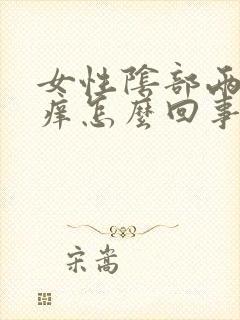 女性陰部兩
癢怎麼回事
宋嵩